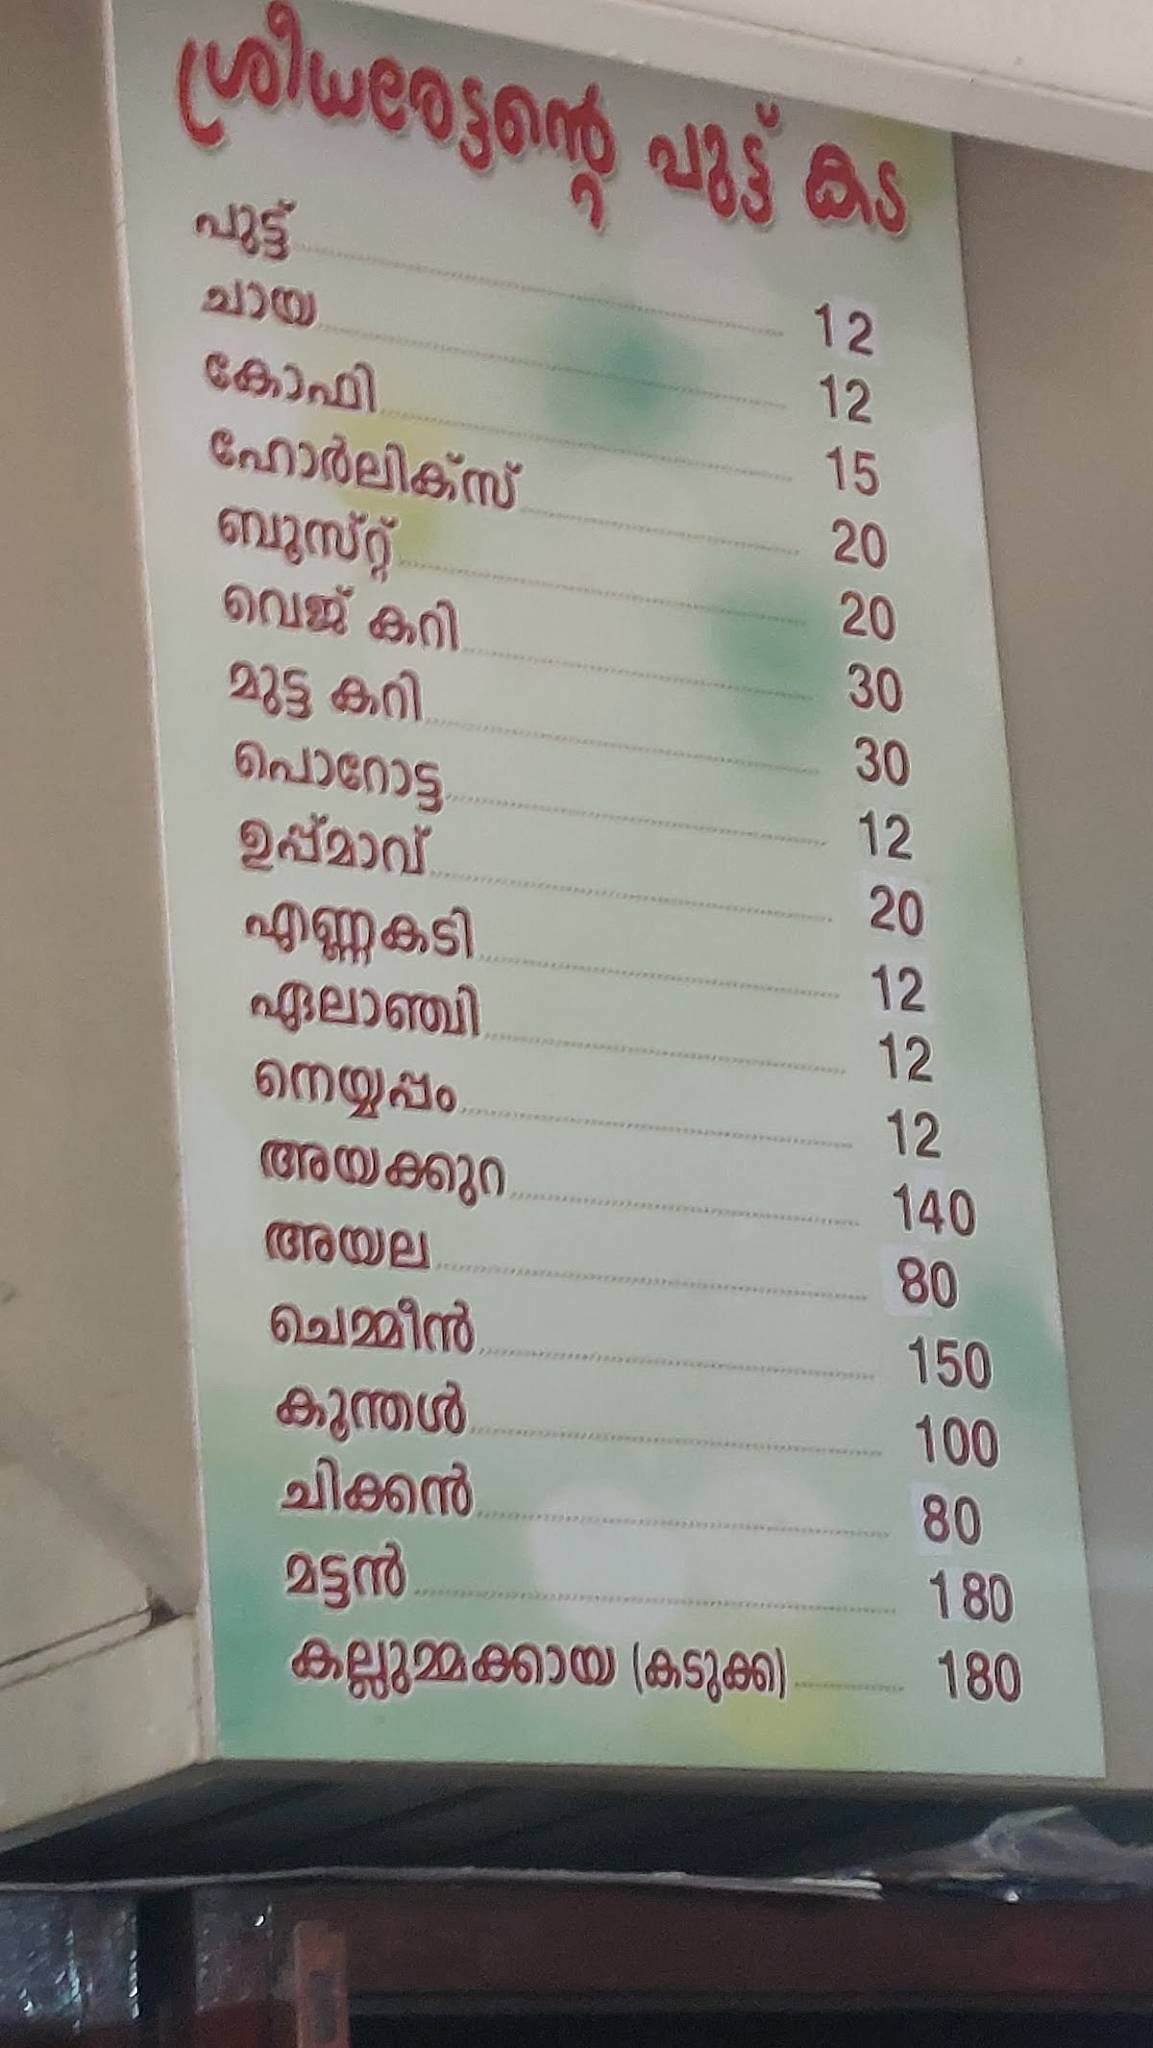 ശ്രീധരേട്ടന്റെ പുട്ട് കട
പുട്ട് 12
ചായ 12
കോഫി 15
ഹോർലിക്സ് 20
ബൂസ്റ്റ് 20
വെജ് കറി 30
മുട്ട കറി 30
പൊറോട്ട 12
ഉപ്പ്മാവ് 20
എണ്ണകടി 12
ഏലാഞ്ചി 12
നെയ്യപ്പം 12
അയക്കുറ 140
അയല 80
ചെമ്മീൻ 150
കൂന്തൾ 100
ചിക്കൻ 80
മട്ടൻ 180
കല്ലുമ്മക്കായ (കടുക്ക) 180